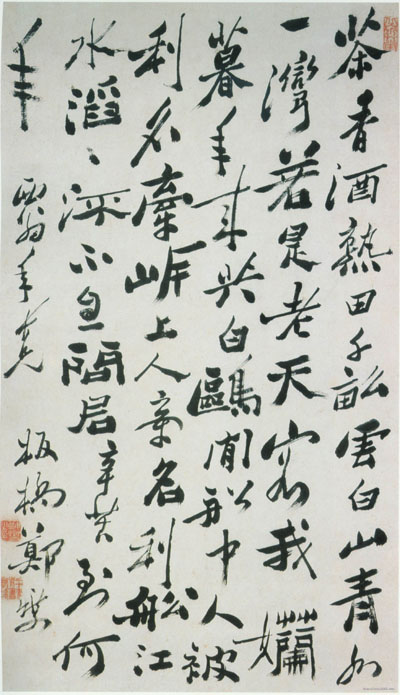 茶香酒熟田千畝雲白山青水
一灣若是老天容我懶
暮年來與白鷗閒舩中人被
利名牽岸上人牽名利舩江
水滔〻流不息問君辛苦到何
年
翁年兄
板橋鄭燮